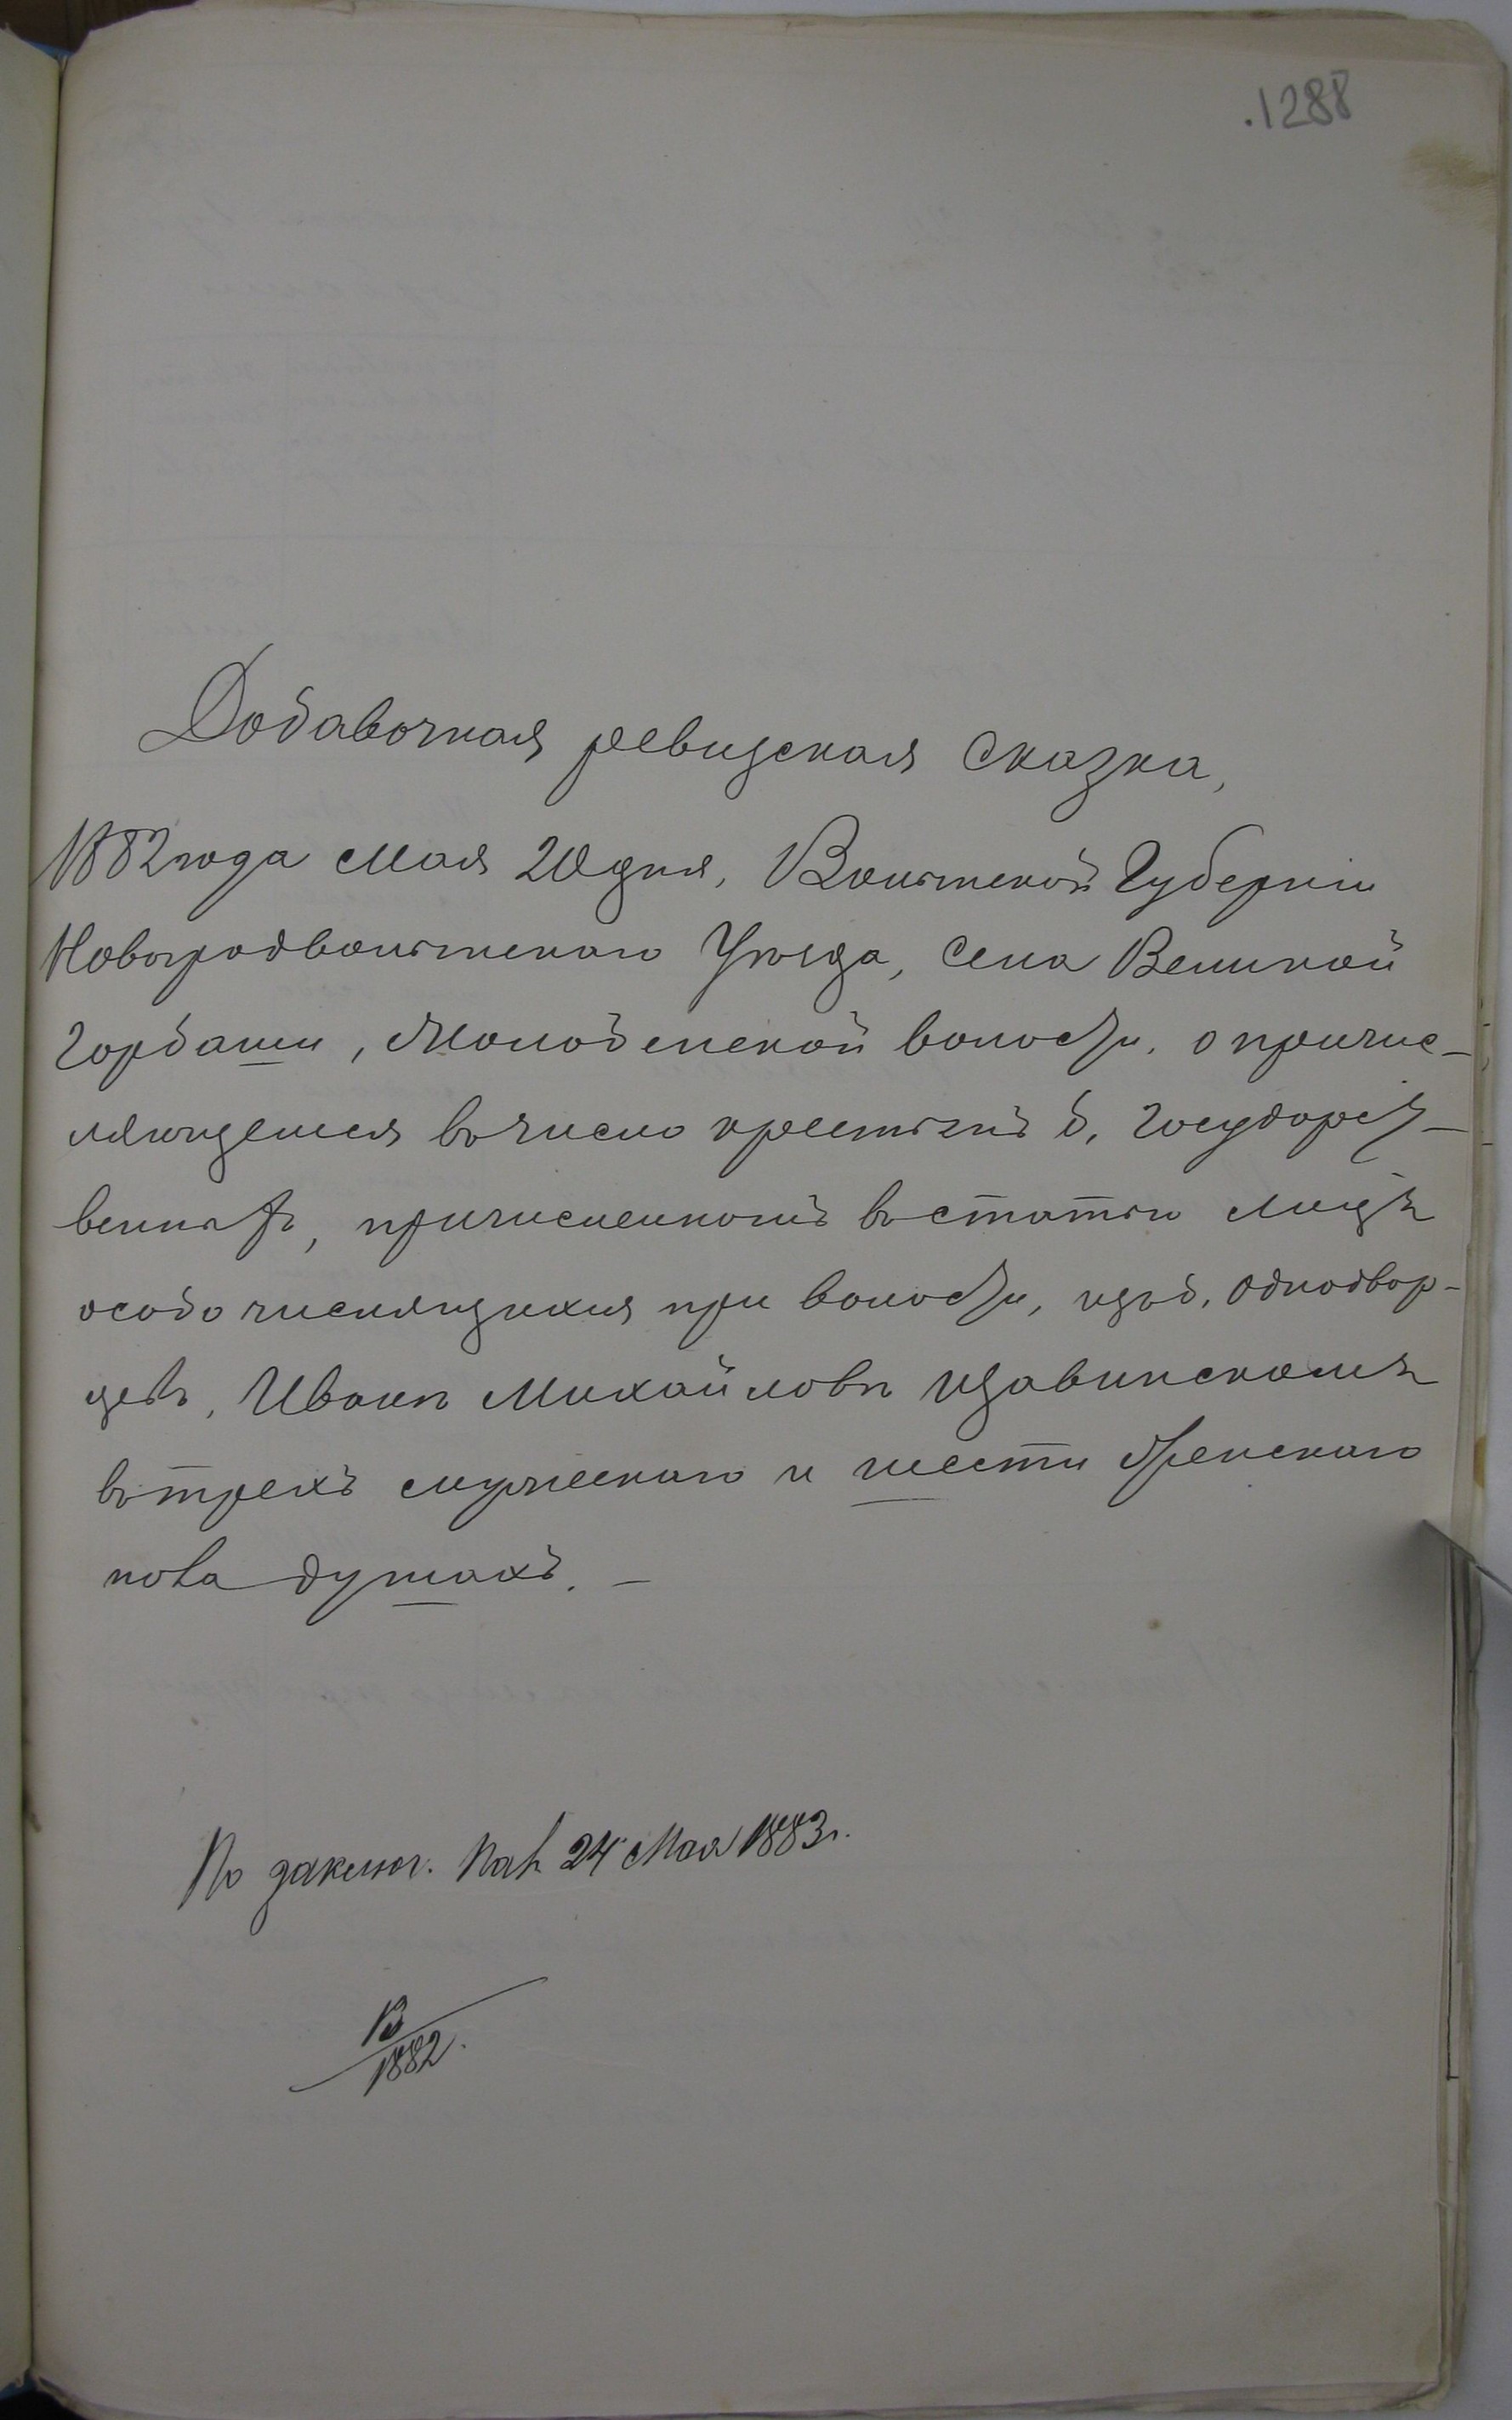 1288
Добавочная ревизская сказка,
1882 года Мая 20 дня, Волынской Губерніи
Новоградволынскаго Уѣзда, села Великой
Горбаши, Молодьковской волости, о причис-
ляющемся въ число крестьянъ б. государст-
венныхъ, причисленномъ въ статью лицъ
особо числящихся при волости, изъ б. однодвор-
цевъ, Иванѣ Михайловѣ
въ трехъ мужескаго и шести женскаго
пола душахъ. —
По заключ. Пал. 24 Мая 1883 г.
13
1882.